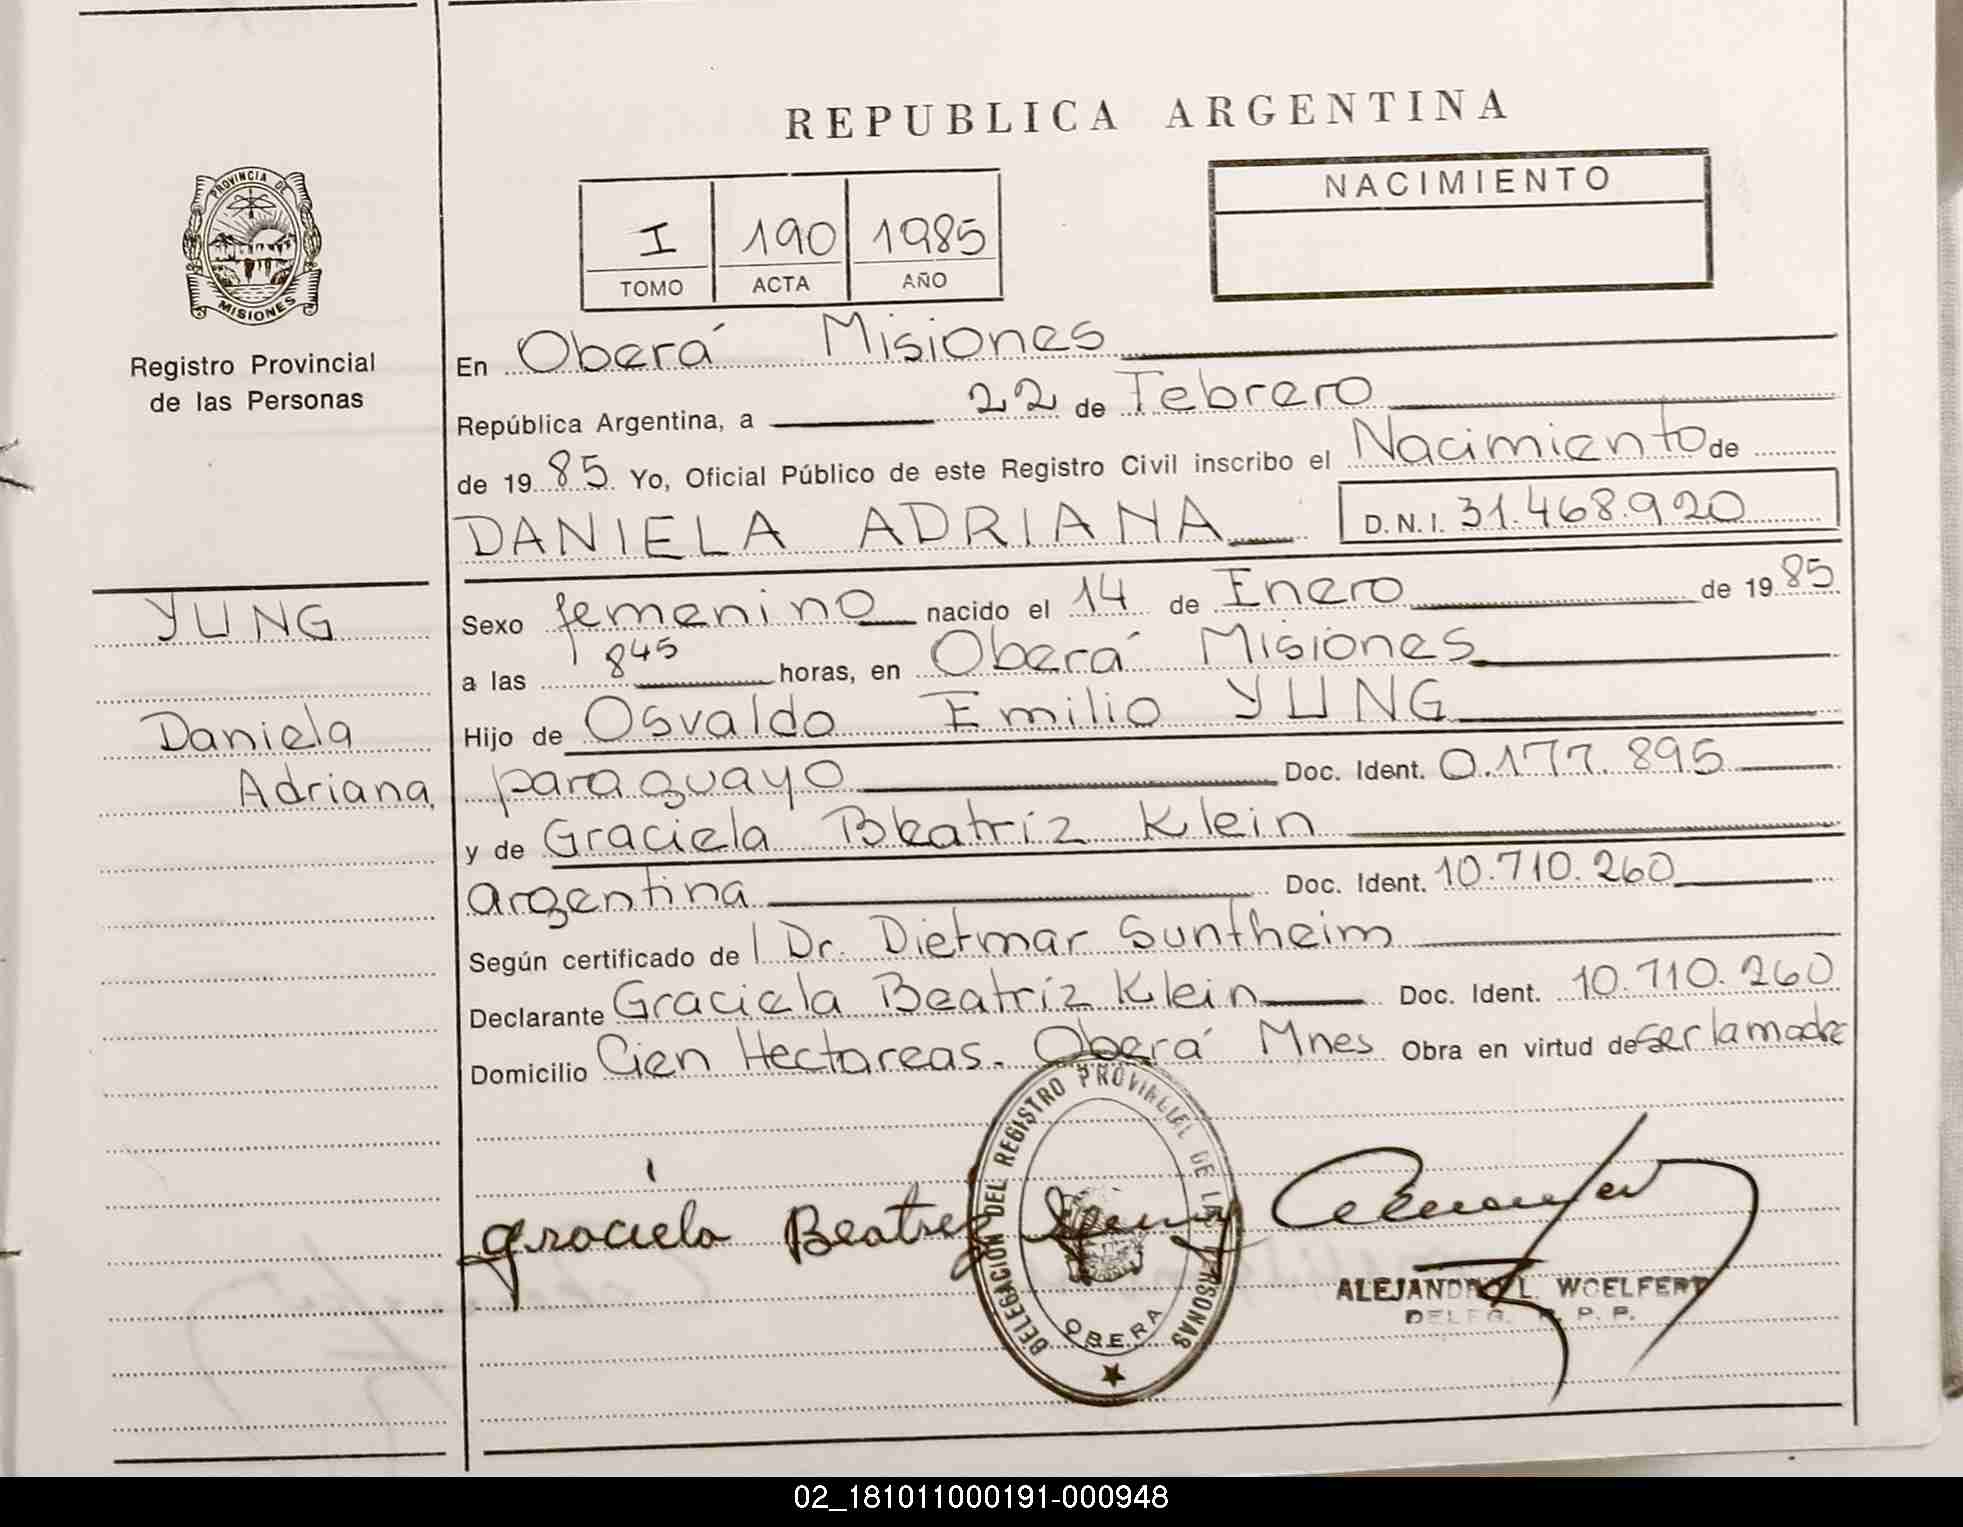 REPUBLICA ARGENTINA
PROVINCIA DE
MISIONES
Registro Provincial
de las Personas
I 190 1985
TOMO ACTA AÑO
NACIMIENTO
En Oberá Misiones
República Argentina, a 22 de Febrero
de 1985 Yo, Oficial Público de este Registro Civil inscribo el Nacimiento de
DANIELA ADRIANA D.N.I. 31.468.920
YUNG
Daniela
Adriana
Sexo femenino nacido el 14 de Enero de 1985
a las 845 horas, en Oberá Misiones
Hijo de Osvaldo Emilio YUNG
paraguayo Doc. Ident. 0.177.895
y de Graciela Beatríz Klein
argentina Doc. Ident. 10.710.260
Según certificado del Dr. Dietmar Suntheim
Declarante Graciela Beatríz Klein Doc. Ident. 10.710.260
Domicilio Cien Hectareas. Oberá Mnes Obra en virtud de ser la madre
DELEGACION DEL REGISTRO PROVINCIAL DE LAS PERSONAS
OBERA
Graciela Beatriz
ALEJANDRO L. WOELFERT
DELEG. R. P. P.
02_181011000191-000948